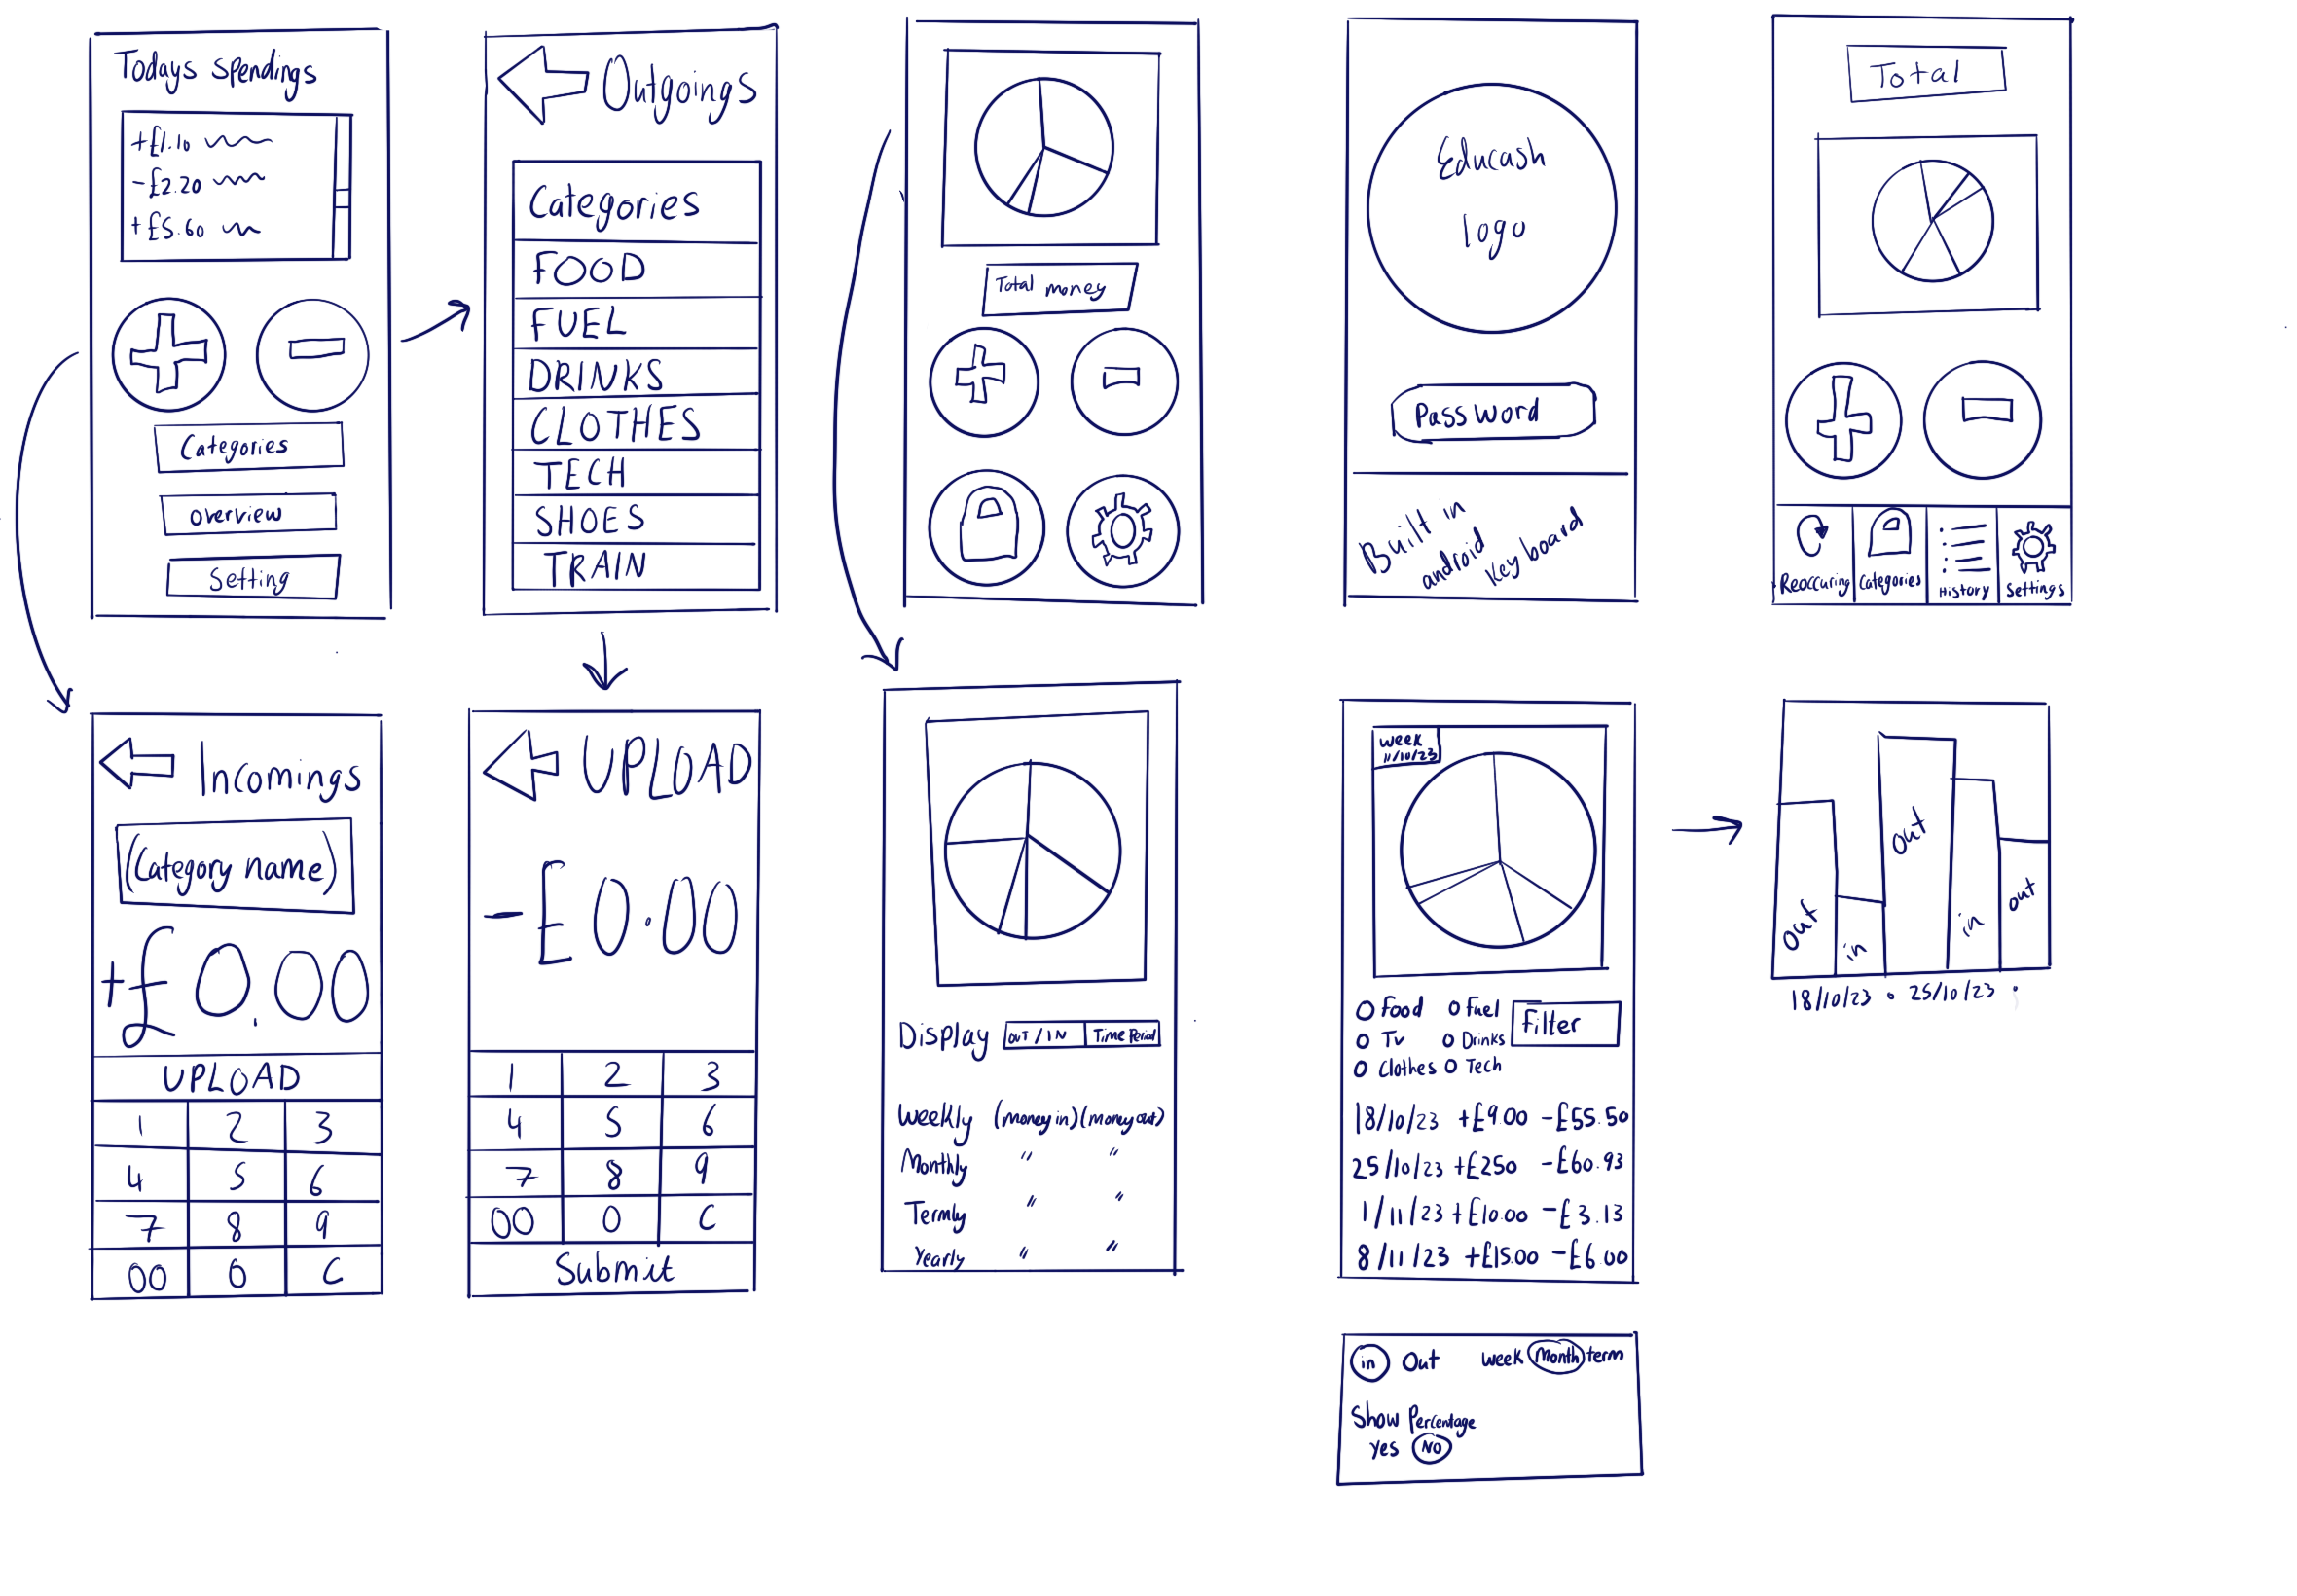 Todays Spendings
+£1.10
-£2.20
+£5.60
Categories
overview
Setting
Outgoings
Categories
FOOD
FUEL
DRINKS
CLOTHES
TECH
SHOES
TRAIN
Total money
Educash
logo
Password
Built in
android
Keyboard
Total
Reoccuring
Categories
History
Settings
Incomings
(Category name)
+£0.00
UPLOAD
1 2 3
4 5 6
7 8 9
00 0 C
UPLOAD
-£0.00
1 2 3
4 5 6
7 8 9
00 0 C
Submit
Display OUT/IN Time Period
Weekly (money in) (money out)
Monthly " "
Termly " "
Yearly " "
week
11/10/23
Food Fuel Filter
Tv Drinks
Clothes Tech
18/10/23 +£9.00 -£55.50
25/10/23 +£250 -£60.93
1/11/23 +£10.00 -£3.13
8/11/23 +£15.00 -£6.00
out in out in out
18/10/23 25/10/23
in Out week Month term
Show Percentage
Yes No